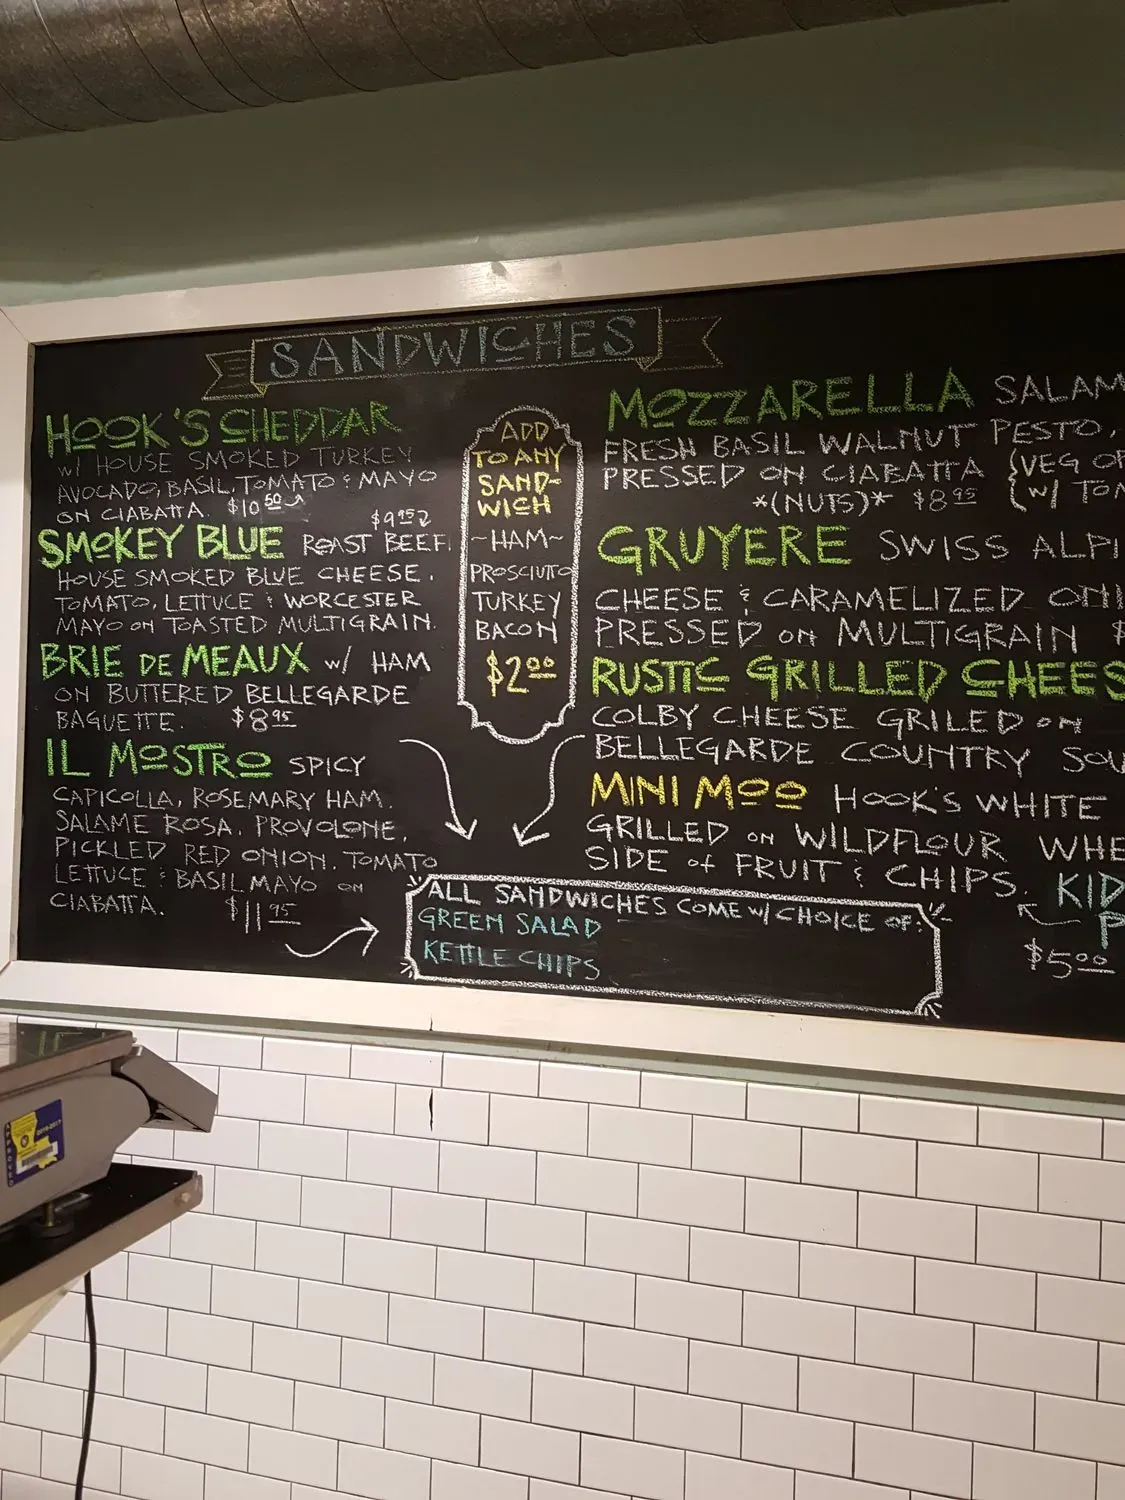 SANDWICHES
HOOK'S CHEDDAR
W/ HOUSE SMOKED TURKEY
AVOCADO, BASIL, TOMATO & MAYO
ON CIABATTA. $10 50
$9 95
SMOKEY BLUE ROAST BEEF
HOUSE SMOKED BLUE CHEESE,
TOMATO, LETTUCE & WORCESTER
MAYO ON TOASTED MULTIGRAIN.
BRIE DE MEAUX W/ HAM
ON BUTTERED BELLEGARDE
BAGUETTE. $8 95
IL MOSTRO SPICY
CAPICOLLA, ROSEMARY HAM,
SALAME ROSA, PROVOLONE,
PICKLED RED ONION, TOMATO
LETTUCE & BASIL MAYO ON
CIABATTA. $11 95
ADD
TO ANY
SAND-
WICH
~HAM~
PROSCIUTTO
TURKEY
BACON
$2 00
MOZZARELLA SALAM
FRESH BASIL WALNUT PESTO,
PRESSED ON CIABATTA {VEG OP
*(NUTS)* $8 95 {W/ TOM
GRUYERE SWISS ALPI
CHEESE & CARAMELIZED ONI
PRESSED ON MULTIGRAIN $
RUSTIC GRILLED CHEES
COLBY CHEESE GRILED ON
BELLEGARDE COUNTRY SOU
MINI MOO HOOK'S WHITE
GRILLED ON WILDFLOUR WHE
SIDE OF FRUIT & CHIPS. KID
P
$5 00
ALL SANDWICHES COME W/ CHOICE OF:
GREEN SALAD
KETTLE CHIPS
2016-2017